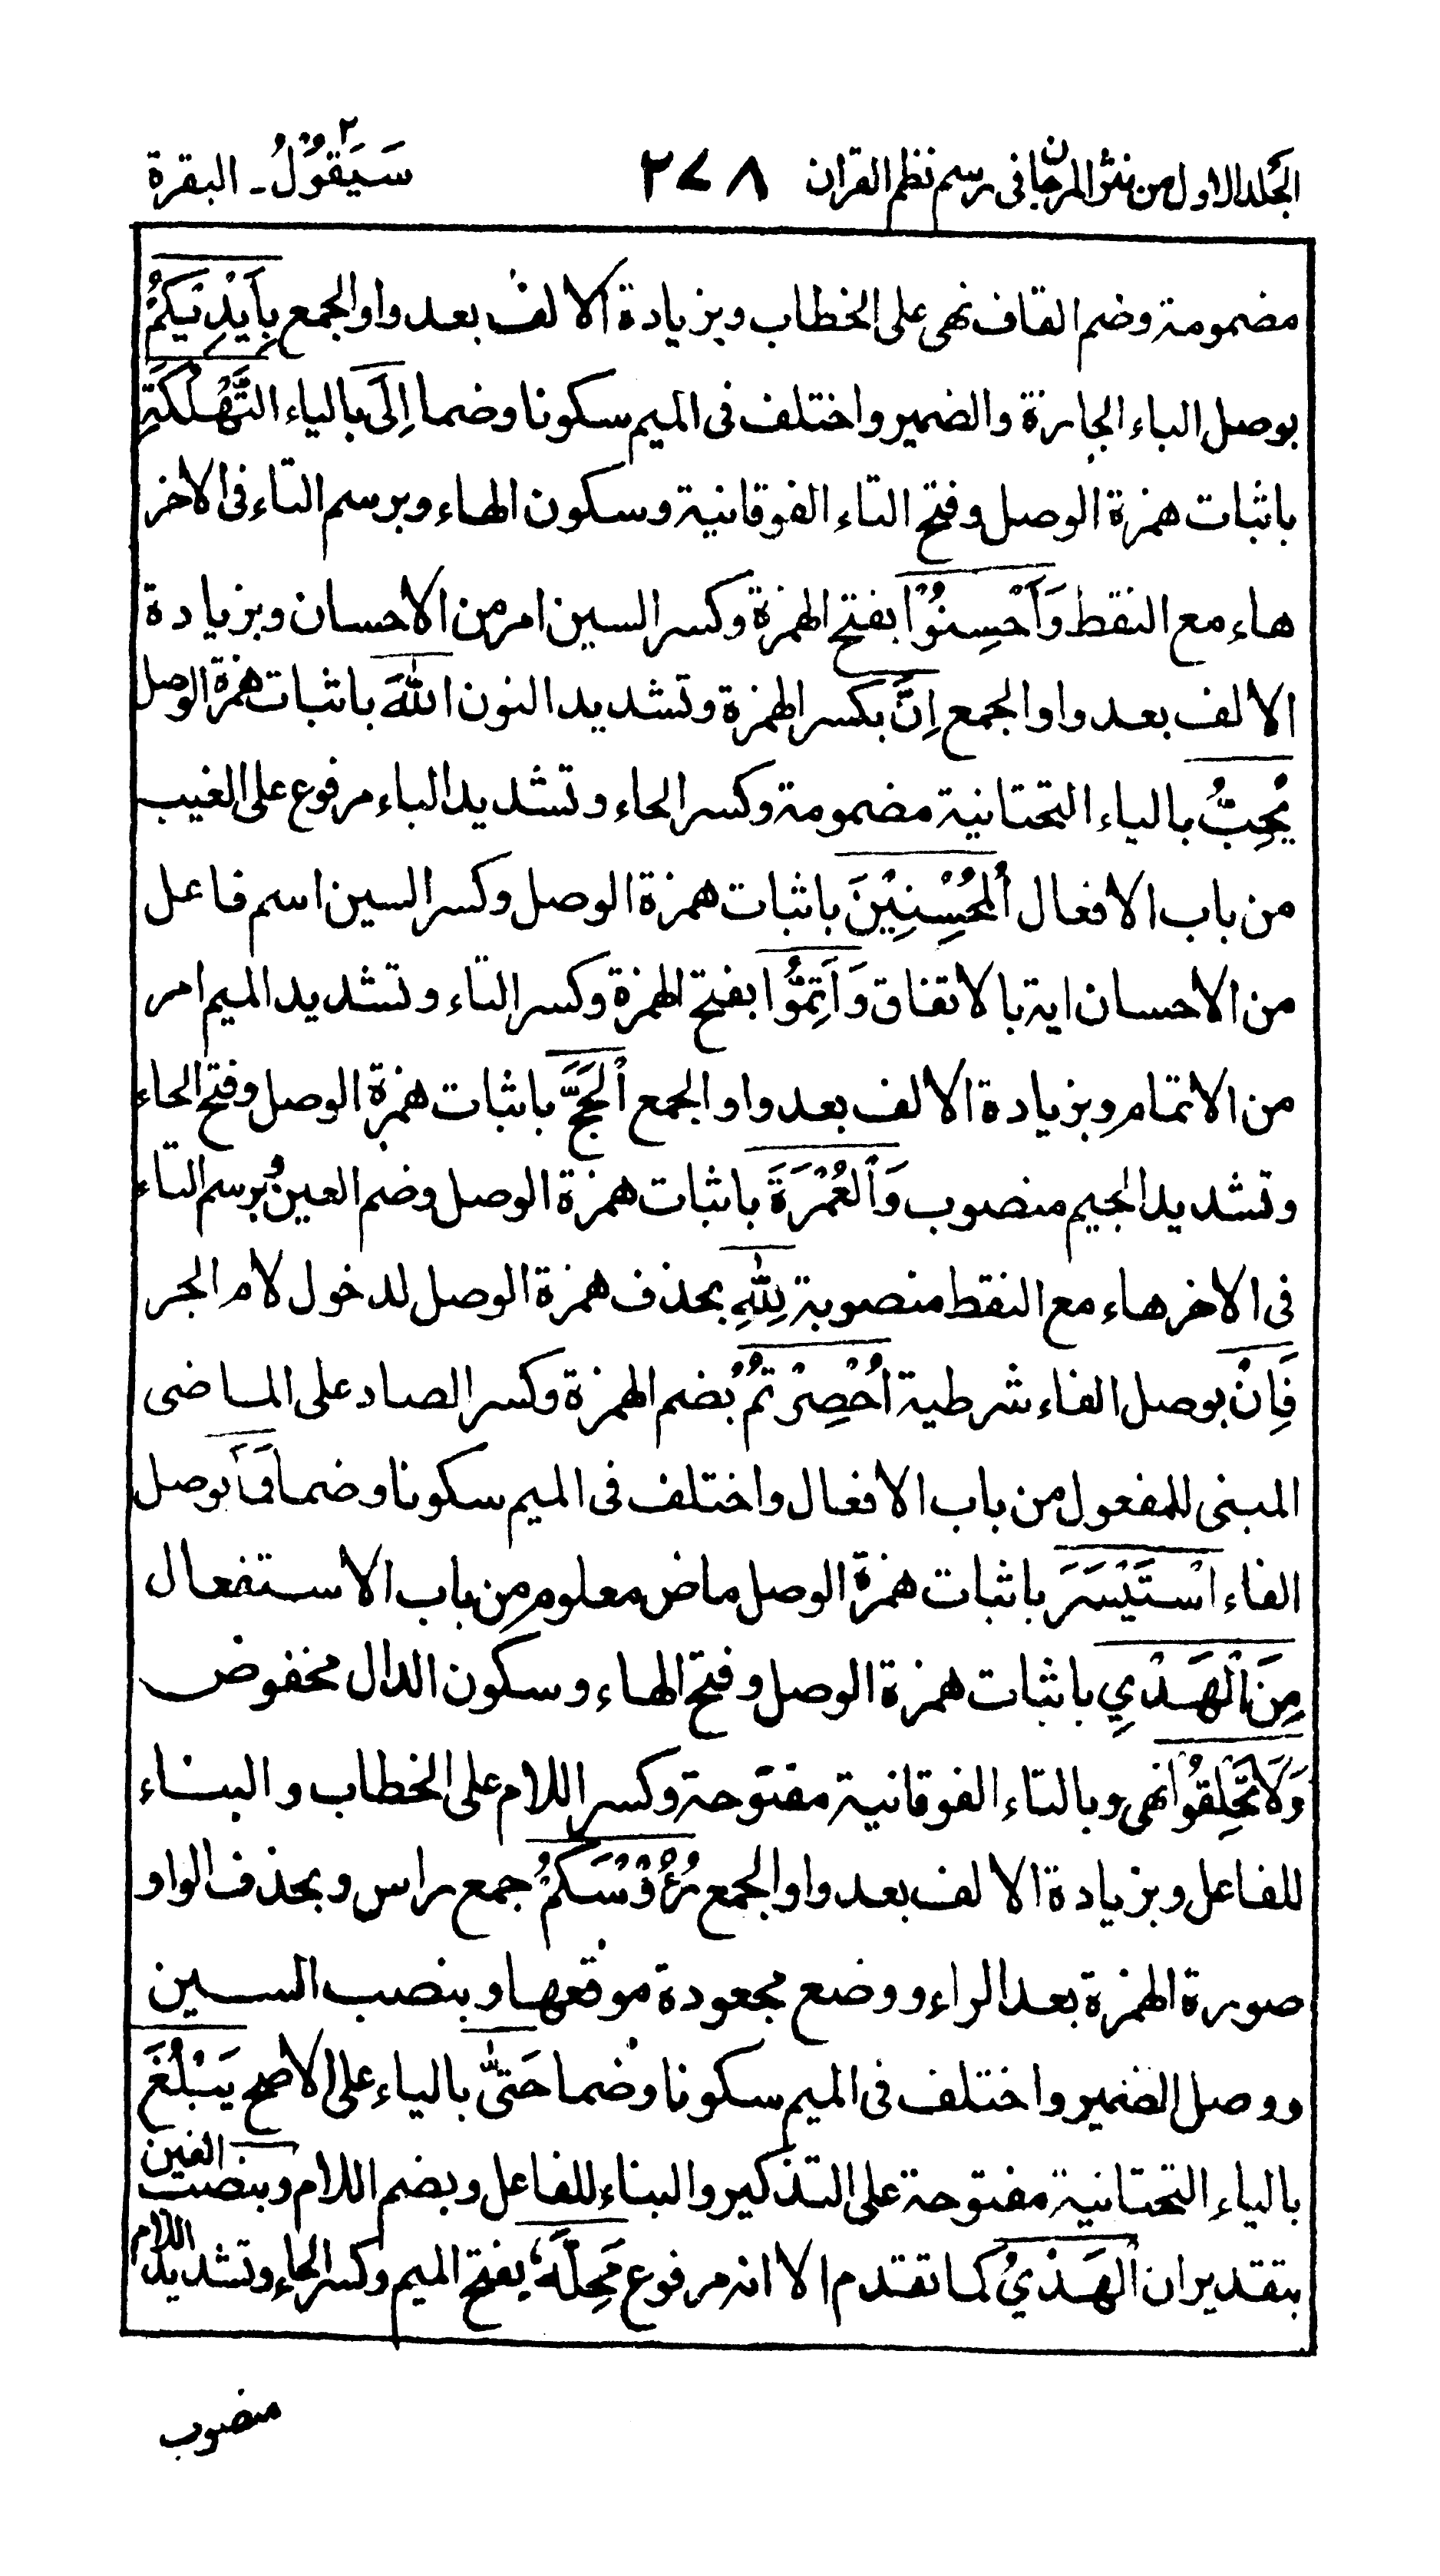 الجلد الاول من نثر المرجان فى رسم نظم القران ٢٧٨ سَيَقُوْلُ ٢ ـ البقرة
مضمومة وضم القاف نهى على الخطاب وبزيادة الالف بعد واو الجمع بِأَيْدِيْكُمْ
بوصل الباء الجارة والضمير واختلف فى الميم سكونا وضما اِلَى بالياء التَّهْلُكَةِ
باثبات همزة الوصل وفتح التاء الفوقانية وسكون الهاء وبرسم التاء فى الاخر
هاء مع النقط وَاَحْسِنُوْا بفتح الهمزة وكسر السين امر من الاحسان وبزيادة
الالف بعد واو الجمع اِنَّ بكسر الهمزة وتشديد النون اللّٰهَ باثبات همزة الوصل
يُحِبُّ بالياء التحتانية مضمومة وكسر الحاء وتشديد الباء مرفوع على الغيب
من باب الافعال اْلمُحْسِنِيْنَ باثبات همزة الوصل وكسر السين اسم فاعل
من الاحسان اية بالاتفاق وَاَتِمُّوْا بفتح الهمزة وكسر التاء وتشديد الميم امر
من الاتمام وبزيادة الالف بعد واو الجمع اْلحَجَّ باثبات همزة الوصل وفتح الحاء
وتشديد الجيم منصوب وَاْلعُمْرَةَ باثبات همزة الوصل وضم العين وبرسم التاء
فى الاخر هاء مع النقط منصوبة لِلّٰهِ بحذف همزة الوصل لدخول لام الجر
فَاِنْ بوصل الفاء شرطية اُحْصِرْتُمْ بضم الهمزة وكسر الصاد على الماضى
المبنى للمفعول من باب الافعال واختلف فى الميم سكونا وضما فَمَا بوصل
الفاء اسْتَيْسَرَ باثبات همزة الوصل ماض معلوم من باب الاستفعال
مِنَ الْهَدْيِ باثبات همزة الوصل وفتح الهاء وسكون الدال مخفوض
وَلَا تَحْلِقُوْا نهى وبالتاء الفوقانية مفتوحة وكسر اللام على الخطاب والبناء
للفاعل وبزيادة الالف بعد واو الجمع رُءُوْسَكُمْ جمع راس وبحذف الواو
صورة الهمزة بعد الراء ووضع مجعودة موقعها وبنصب السين
ووصل الضمير واختلف فى الميم سكونا وضما حَتّٰى بالياء على الاصح يَبْلُغَ
بالياء التحتانية مفتوحة على التذكير والبناء للفاعل وبضم اللام وبنصب الغين
بتقدير ان اْلهَدْيُ كما تقدم الا انه مرفوع مَحِلَّهٗ بفتح الميم وكسر الحاء وتشديد اللام
منصوب